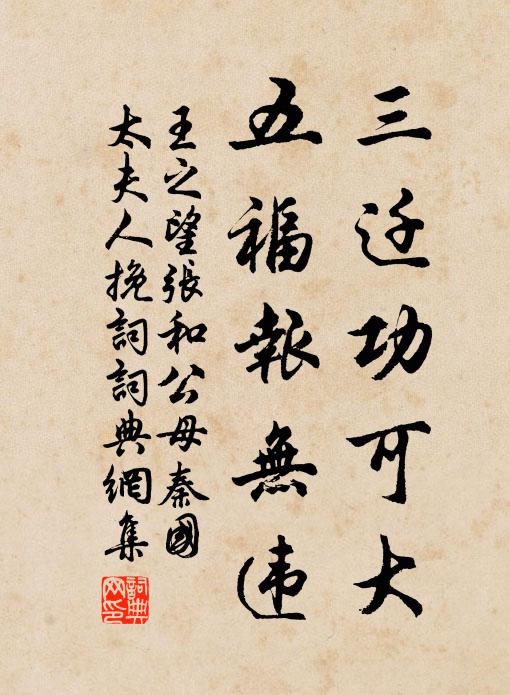 三迁功可大
五福報無违
王之望張和公母秦國
太夫人挽詞詞典網集
詞典网印